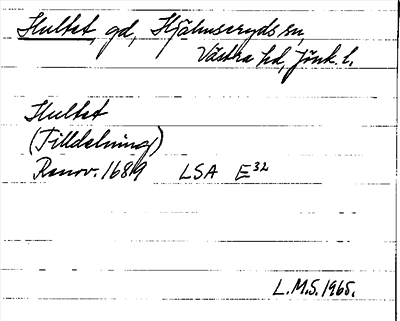 Hultet, gd, Hjälmseryds sn,
Västra hd, Jönk. l.
Hultet
(Tilldelning)
Renov. 1689 LSA E32
L.M.S. 1965.